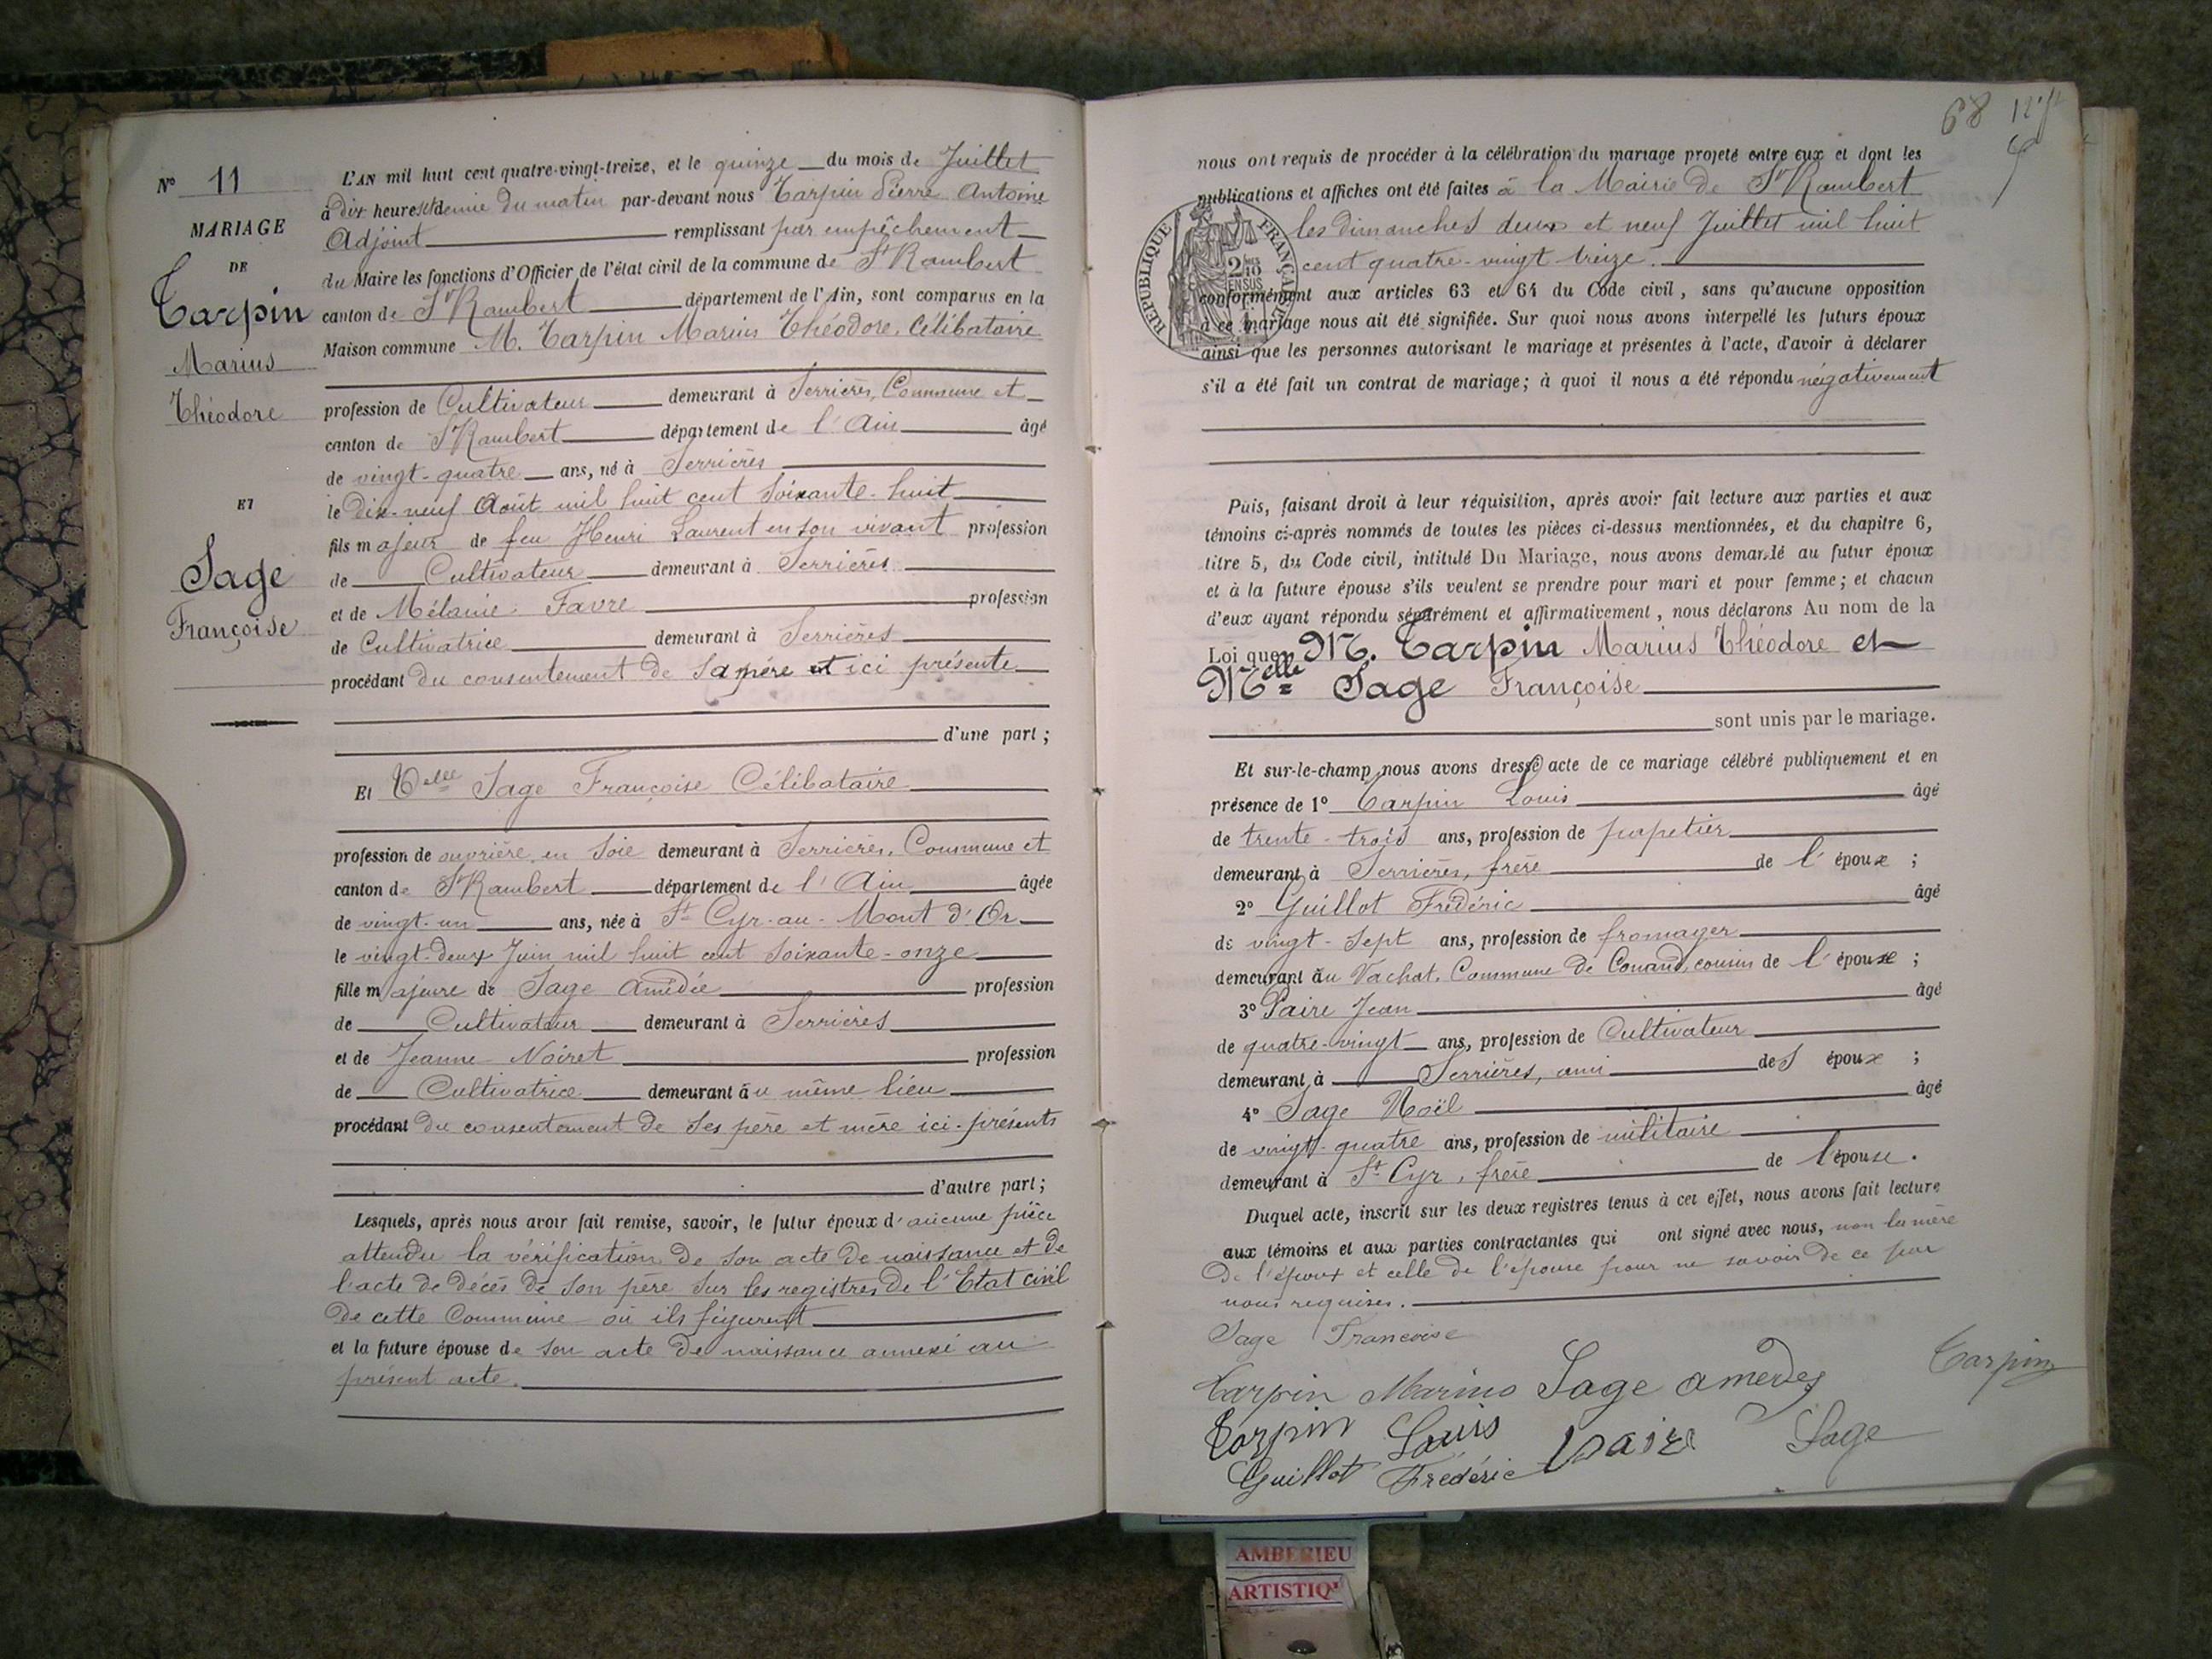 N° 11
MARIAGE
DE
Tarpin
Marius
Théodore
ET
Sage
Françoise
L'AN mil huit cent quatre-vingt-treize, et le quinze du mois de Juillet
à dix heures et demie du matin par-devant nous Tarpin Pierre Antoine
Adjoint remplissant par empêchement
du Maire les fonctions d'Officier de l'état civil de la commune de St Rambert
canton de St Rambert département de l'Ain, sont comparus en la
Maison commune M. Tarpin Marius Théodore, Célibataire
profession de Cultivateur demeurant à Serrières, Commune et
canton de St Rambert département de l'Ain âgé
de vingt-quatre ans, né à Serrières
le dix-neuf Août mil huit cent soixante-huit
fils majeur de feu Henri Laurent en son vivant profession
de Cultivateur demeurant à Serrières
et de Mélanie Favre profession
de Cultivatrice demeurant à Serrières
procédant du consentement de sa mère ici présente
d'une part;
Et Delle Sage Françoise Célibataire
profession de ouvrière en soie demeurant à Serrières, Commune et
canton de St Rambert département de l'Ain âgée
de vingt-un ans, née à St Cyr-au-Mont d'Or
le vingt-deux Juin mil huit cent soixante-onze
fille majeure de Sage Amédée profession
de Cultivateur demeurant à Serrières
et de Jeanne Noiret profession
de Cultivatrice demeurant au même lieu
procédant du consentement de ses père et mère ici présents
d'autre part;
Lesquels, après nous avoir fait remise, savoir, le futur époux d'aucune pièce
attendu la vérification de son acte de naissance et de
l'acte de décès de son père sur les registres de l'Etat civil
de cette Commune où ils figurent
et la future épouse de son acte de naissance annexé au
présent acte.
68
nous ont requis de procéder à la célébration du mariage projeté entre eux et dont les
publications et affiches ont été faites à la Mairie de St Rambert
les dimanches deux et neuf Juillet mil huit
cent quatre-vingt treize.
RÉPUBLIQUE FRANÇAISE
conformément aux articles 63 et 64 du Code civil, sans qu'aucune opposition
à ce mariage nous ait été signifiée. Sur quoi nous avons interpellé les futurs époux
ainsi que les personnes autorisant le mariage et présentes à l'acte, d'avoir à déclarer
s'il a été fait un contrat de mariage; à quoi il nous a été répondu négativement
Puis, faisant droit à leur réquisition, après avoir fait lecture aux parties et aux
témoins ci-après nommés de toutes les pièces ci-dessus mentionnées, et du chapitre 6,
titre 5, du Code civil, intitulé Du Mariage, nous avons demandé au futur époux
et à la future épouse s'ils veulent se prendre pour mari et pour femme; et chacun
d'eux ayant répondu séparément et affirmativement, nous déclarons Au nom de la
Loi que M. Tarpin Marius Théodore et
Melle Sage Françoise
sont unis par le mariage.
Et sur-le-champ nous avons dressé acte de ce mariage célébré publiquement et en
présence de 1° Tarpin Louis âgé
de trente-trois ans, profession de papetier
demeurant à Serrières, frère de l'époux;
2° Guillot Frédéric âgé
de vingt-sept ans, profession de fromager
demeurant au Vachat, Commune de Conand, cousin de l'épouse;
3° Paire Jean âgé
de quatre-vingt ans, profession de Cultivateur
demeurant à Serrières, ami des époux;
4° Sage Noël âgé
de vingt-quatre ans, profession de militaire
demeurant à St Cyr, frère de l'épouse.
Duquel acte, inscrit sur les deux registres tenus à cet effet, nous avons fait lecture
aux témoins et aux parties contractantes qui ont signé avec nous, non la mère
de l'époux et celle de l'épouse pour ne savoir de ce par
nous requises.
Sage Françoise
Tarpin Marius Sage amedey Tarpin
Tarpin Louis Paire Sage
Guillot Frédéric
AMBERIEU
ARTISTIQ